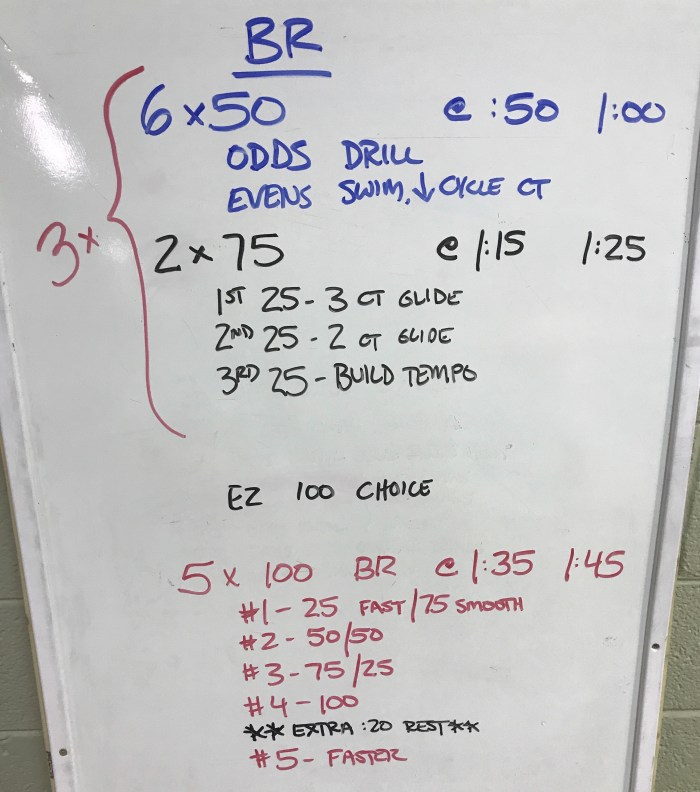 BR
3x
6 x 50 @ :50 1:00
ODDS DRILL
EVENS SWIM, ↓ CYCLE CT
2 x 75 @ 1:15 1:25
1ST 25 - 3 CT GLIDE
2ND 25 - 2 CT GLIDE
3RD 25 - BUILD TEMPO
EZ 100 CHOICE
5 x 100 BR @ 1:35 1:45
#1 - 25 FAST/75 SMOOTH
#2 - 50/50
#3 - 75/25
#4 - 100
** EXTRA :20 REST**
#5 - FASTER